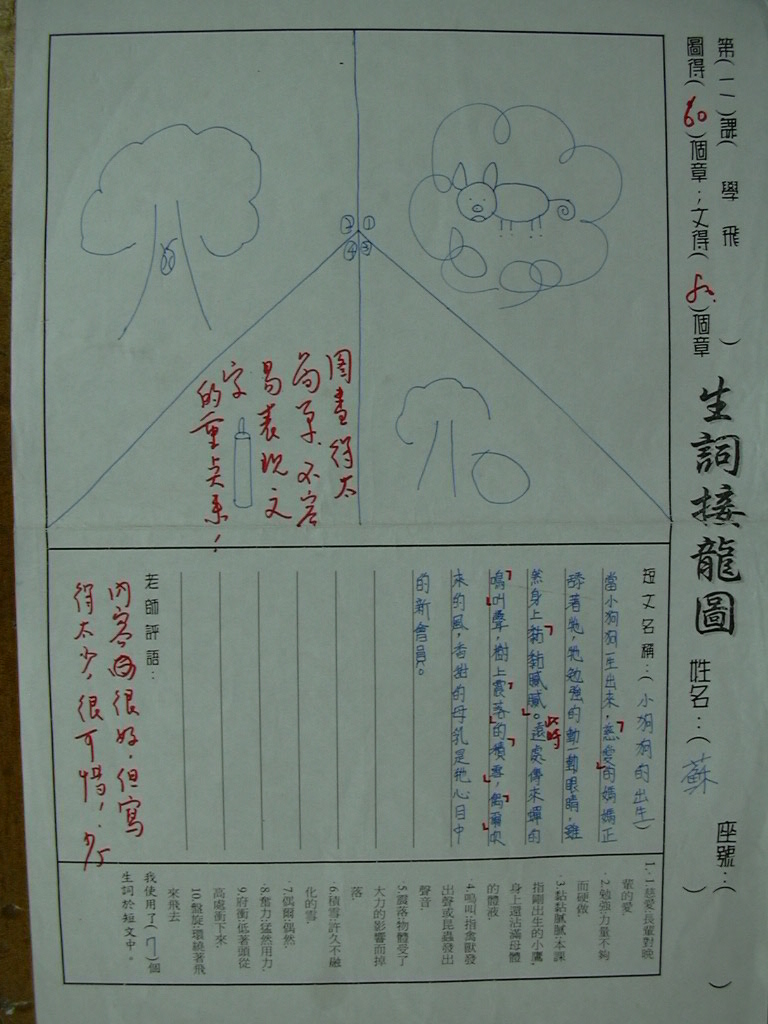 生詞接龍圖
第(一一)課(學飛)
圖得(60)個章;文得()個章
姓名:(蘇)
座號:()
①
②
③
④
圖畫得太
简单,不容
易表現文
字
的重点來!
短文名稱:(小狗狗的出生)
當小狗狗一生出來,慈愛的媽媽正
舔著牠,牠勉強的動一動眼睛,雖
然身上黏黏膩膩。此時遠處傳來蟬的
鳴叫聲,樹上震落的積雪,偶爾吹
來的風,香甜的母乳是牠心目中
的新會員。
老師評語:
內容很好,但寫
得太少,很可惜!
我使用了(7)個
生詞於短文中。
1.慈愛:長輩對晚
輩的愛
2.勉強:力量不夠
而硬做
3.黏黏膩膩:本課
指剛出生的小鷹
身上還沾滿母體
的體液
4.鳴叫:指禽獸發
出聲或昆蟲發出
聲音.
5.震落:物體受了
大力的影響而掉
落.
6.積雪:許久不融
化的雪.
7.偶爾:偶然.
8.奮力:猛然用力.
9.俯衝:低著頭從
高處衝下來.
10.盤旋:環繞著飛
來飛去